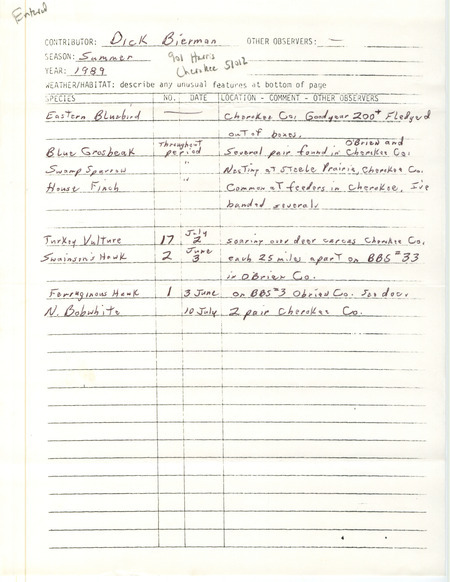 Entered
CONTRIBUTOR: Dick Bierman OTHER OBSERVERS: —
SEASON: Summer 901 Harris
YEAR: 1989 Cherokee 51012
WEATHER/HABITAT: describe any unusual features at bottom of page
SPECIES NO. DATE LOCATION - COMMENT - OTHER OBSERVERS
Eastern Bluebird — Cherokee Co. Good year 200+ Fledged
out of boxes.
Blue Grosbeak Throughout period Several pair found in O'Brien and Cherokee Co.
Swamp Sparrow " Nesting at Steele Prairie, Cherokee Co.
House Finch " Common at feeders in Cherokee. I've
banded several.
Turkey Vulture 17 July 2 soaring over deer carcas Cherokee Co.
Swainson's Hawk 2 June 3 each 25 miles apart on BBS #33
in O'Brien Co.
Ferruginous Hawk 1 3 June on BBS #3 Obrien Co. See doc.
N. Bobwhite 10 July 2 pair Cherokee Co.